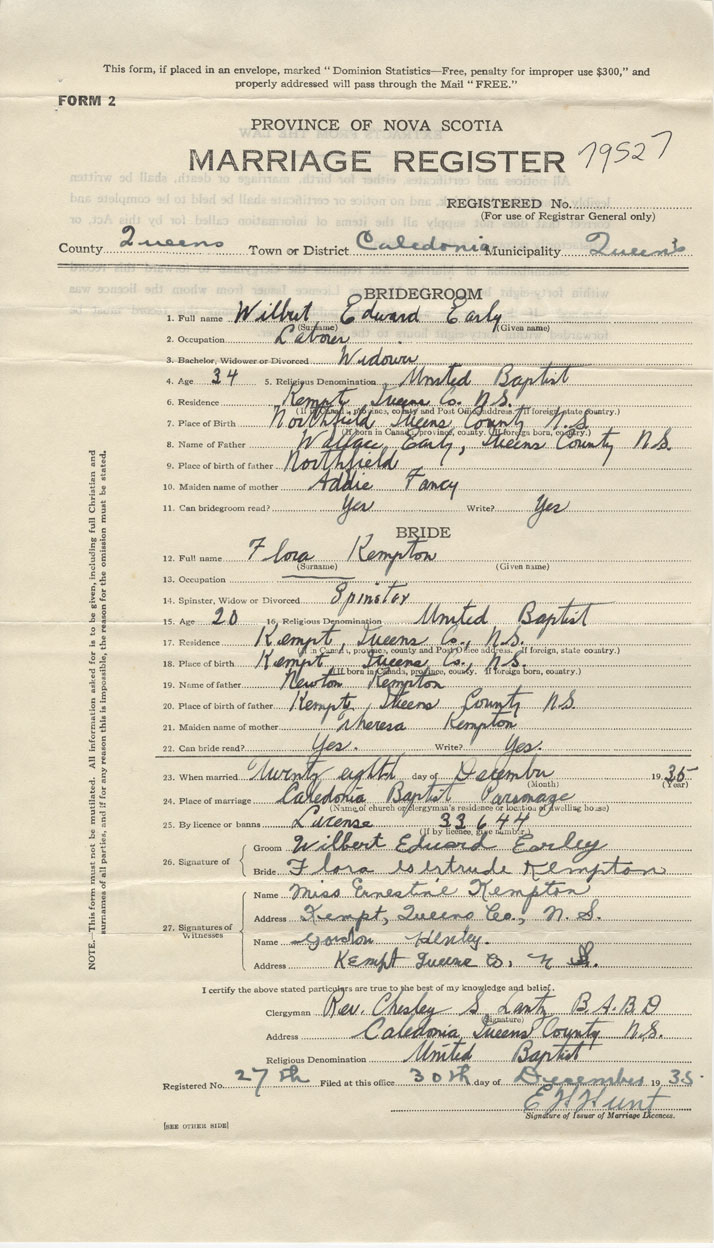 This form, if placed in an envelope, marked "Dominion Statistics—Free, penalty for improper use $300," and
properly addressed will pass through the Mail "FREE."
FORM 2
PROVINCE OF NOVA SCOTIA
MARRIAGE REGISTER 19527
REGISTERED No.
(For use of Registrar General only)
County Queens Town or District Caledonia Municipality Queens
BRIDEGROOM
1. Full name Wilbert Edward Early
(Surname) (Given name)
2. Occupation Laborer
3. Bachelor, Widower or Divorced Widower
4. Age 34 5. Religious Denomination United Baptist
6. Residence Kempt, Queens Co. N.S.
(If in Canada, province, county and Post Office address. If foreign, state country.)
7. Place of Birth Northfield Queens County N.S.
(If born in Canada, province, county. If foreign born, country.)
8. Name of Father Wallace Early, Queens County N.S.
9. Place of birth of father Northfield
10. Maiden name of mother Addie Fancy
11. Can bridegroom read? Yes Write? Yes
BRIDE
12. Full name Flora Kempton
(Surname) (Given name)
13. Occupation
14. Spinster, Widow or Divorced Spinster
15. Age 20 16. Religious Denomination United Baptist
17. Residence Kempt, Queens Co., N.S.
(If in Canada, province, county and Post Office address. If foreign, state country.)
18. Place of birth Kempt, Queens Co., N.S.
(If born in Canada, province, county. If foreign born, country.)
19. Name of father Newton Kempton
20. Place of birth of father Kempt, Queens County N.S.
21. Maiden name of mother Theresa Kempton
22. Can bride read? Yes. Write? Yes.
23. When married Twenty eighth day of December 1935
(Month) (Year)
24. Place of marriage Caledonia Baptist Parsonage
(Name of church or clergyman's residence or location of dwelling house)
25. By licence or banns License 33644
(If by licence, give number)
26. Signature of
Groom Wilbert Eduard Earley
Bride Flora Gertrude Kempton
27. Signatures of Witnesses
Name Miss Ernestine Kempton
Address Kempt, Queens Co., N. S.
Name Gordon Henley.
Address Kempt Queens Co, N S.
I certify the above stated particulars are true to the best of my knowledge and belief.
Clergyman Rev. Chesley S Lantz B.A. B D
(Signature)
Address Caledonia, Queens County N.S.
Religious Denomination United Baptist
Registered No. 27th Filed at this office 30th day of December 1935.
E H Hunt
Signature of Issuer of Marriage Licences.
[SEE OTHER SIDE]
NOTE.—This form must not be mutilated. All information asked for is to be given, including full Christian and
surnames of all parties, and if for any reason this is impossible, the reason for the omission must be stated.